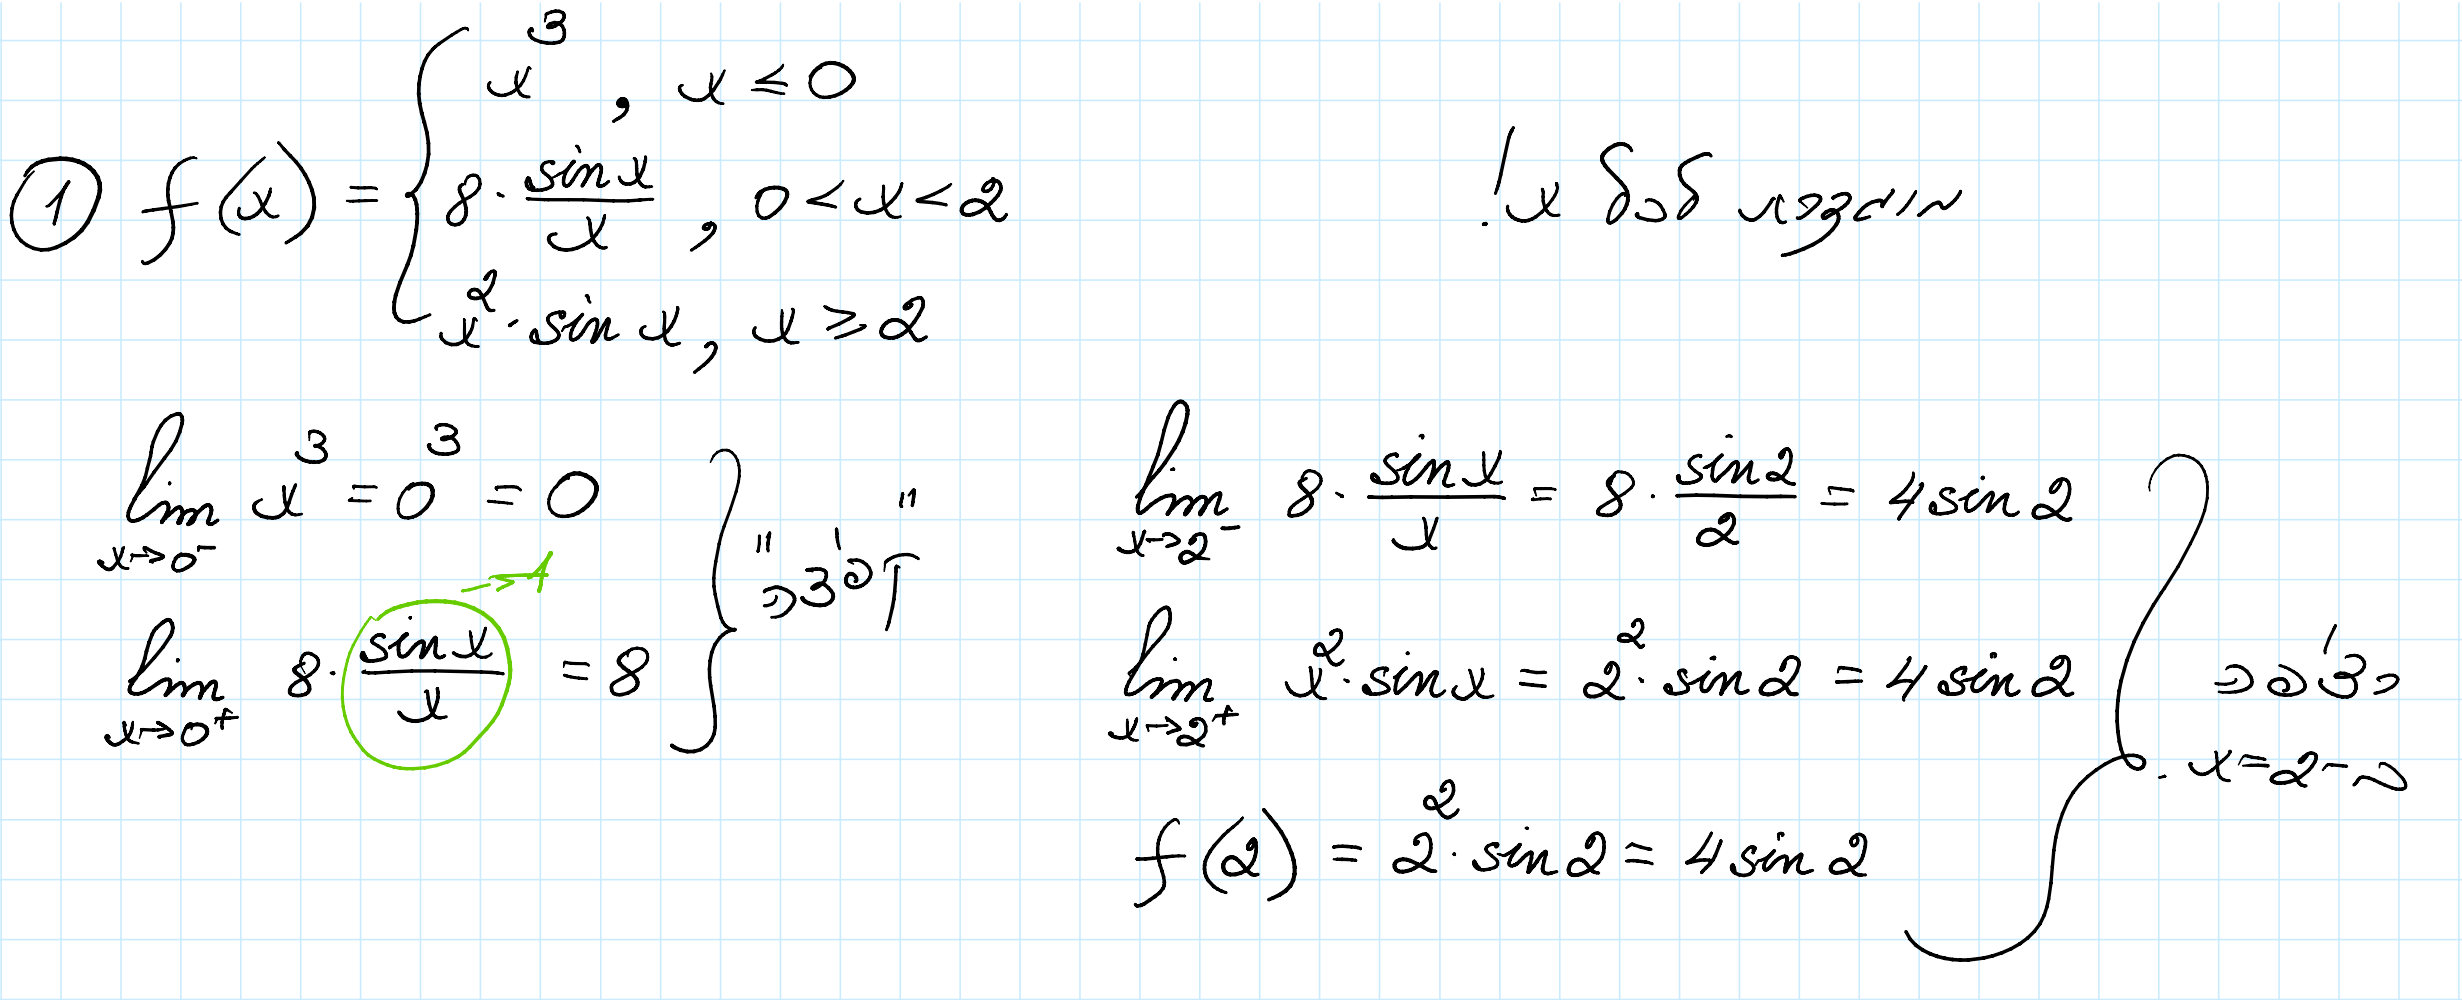 ① f(x) = { x³ , x ≤ 0
8 · sin x / x , 0 < x < 2
x² · sin x , x ≥ 2
מוגדרת לכל x!
lim x→0⁻ x³ = 0³ = 0
lim x→0⁺ 8 · sin x / x = 8
→1
lim x→2⁻ 8 · sin x / x = 8 · sin 2 / 2 = 4 sin 2
lim x→2⁺ x² · sin x = 2² · sin 2 = 4 sin 2
f(2) = 2² · sin 2 = 4 sin 2
רציפה
ב- x = 2.